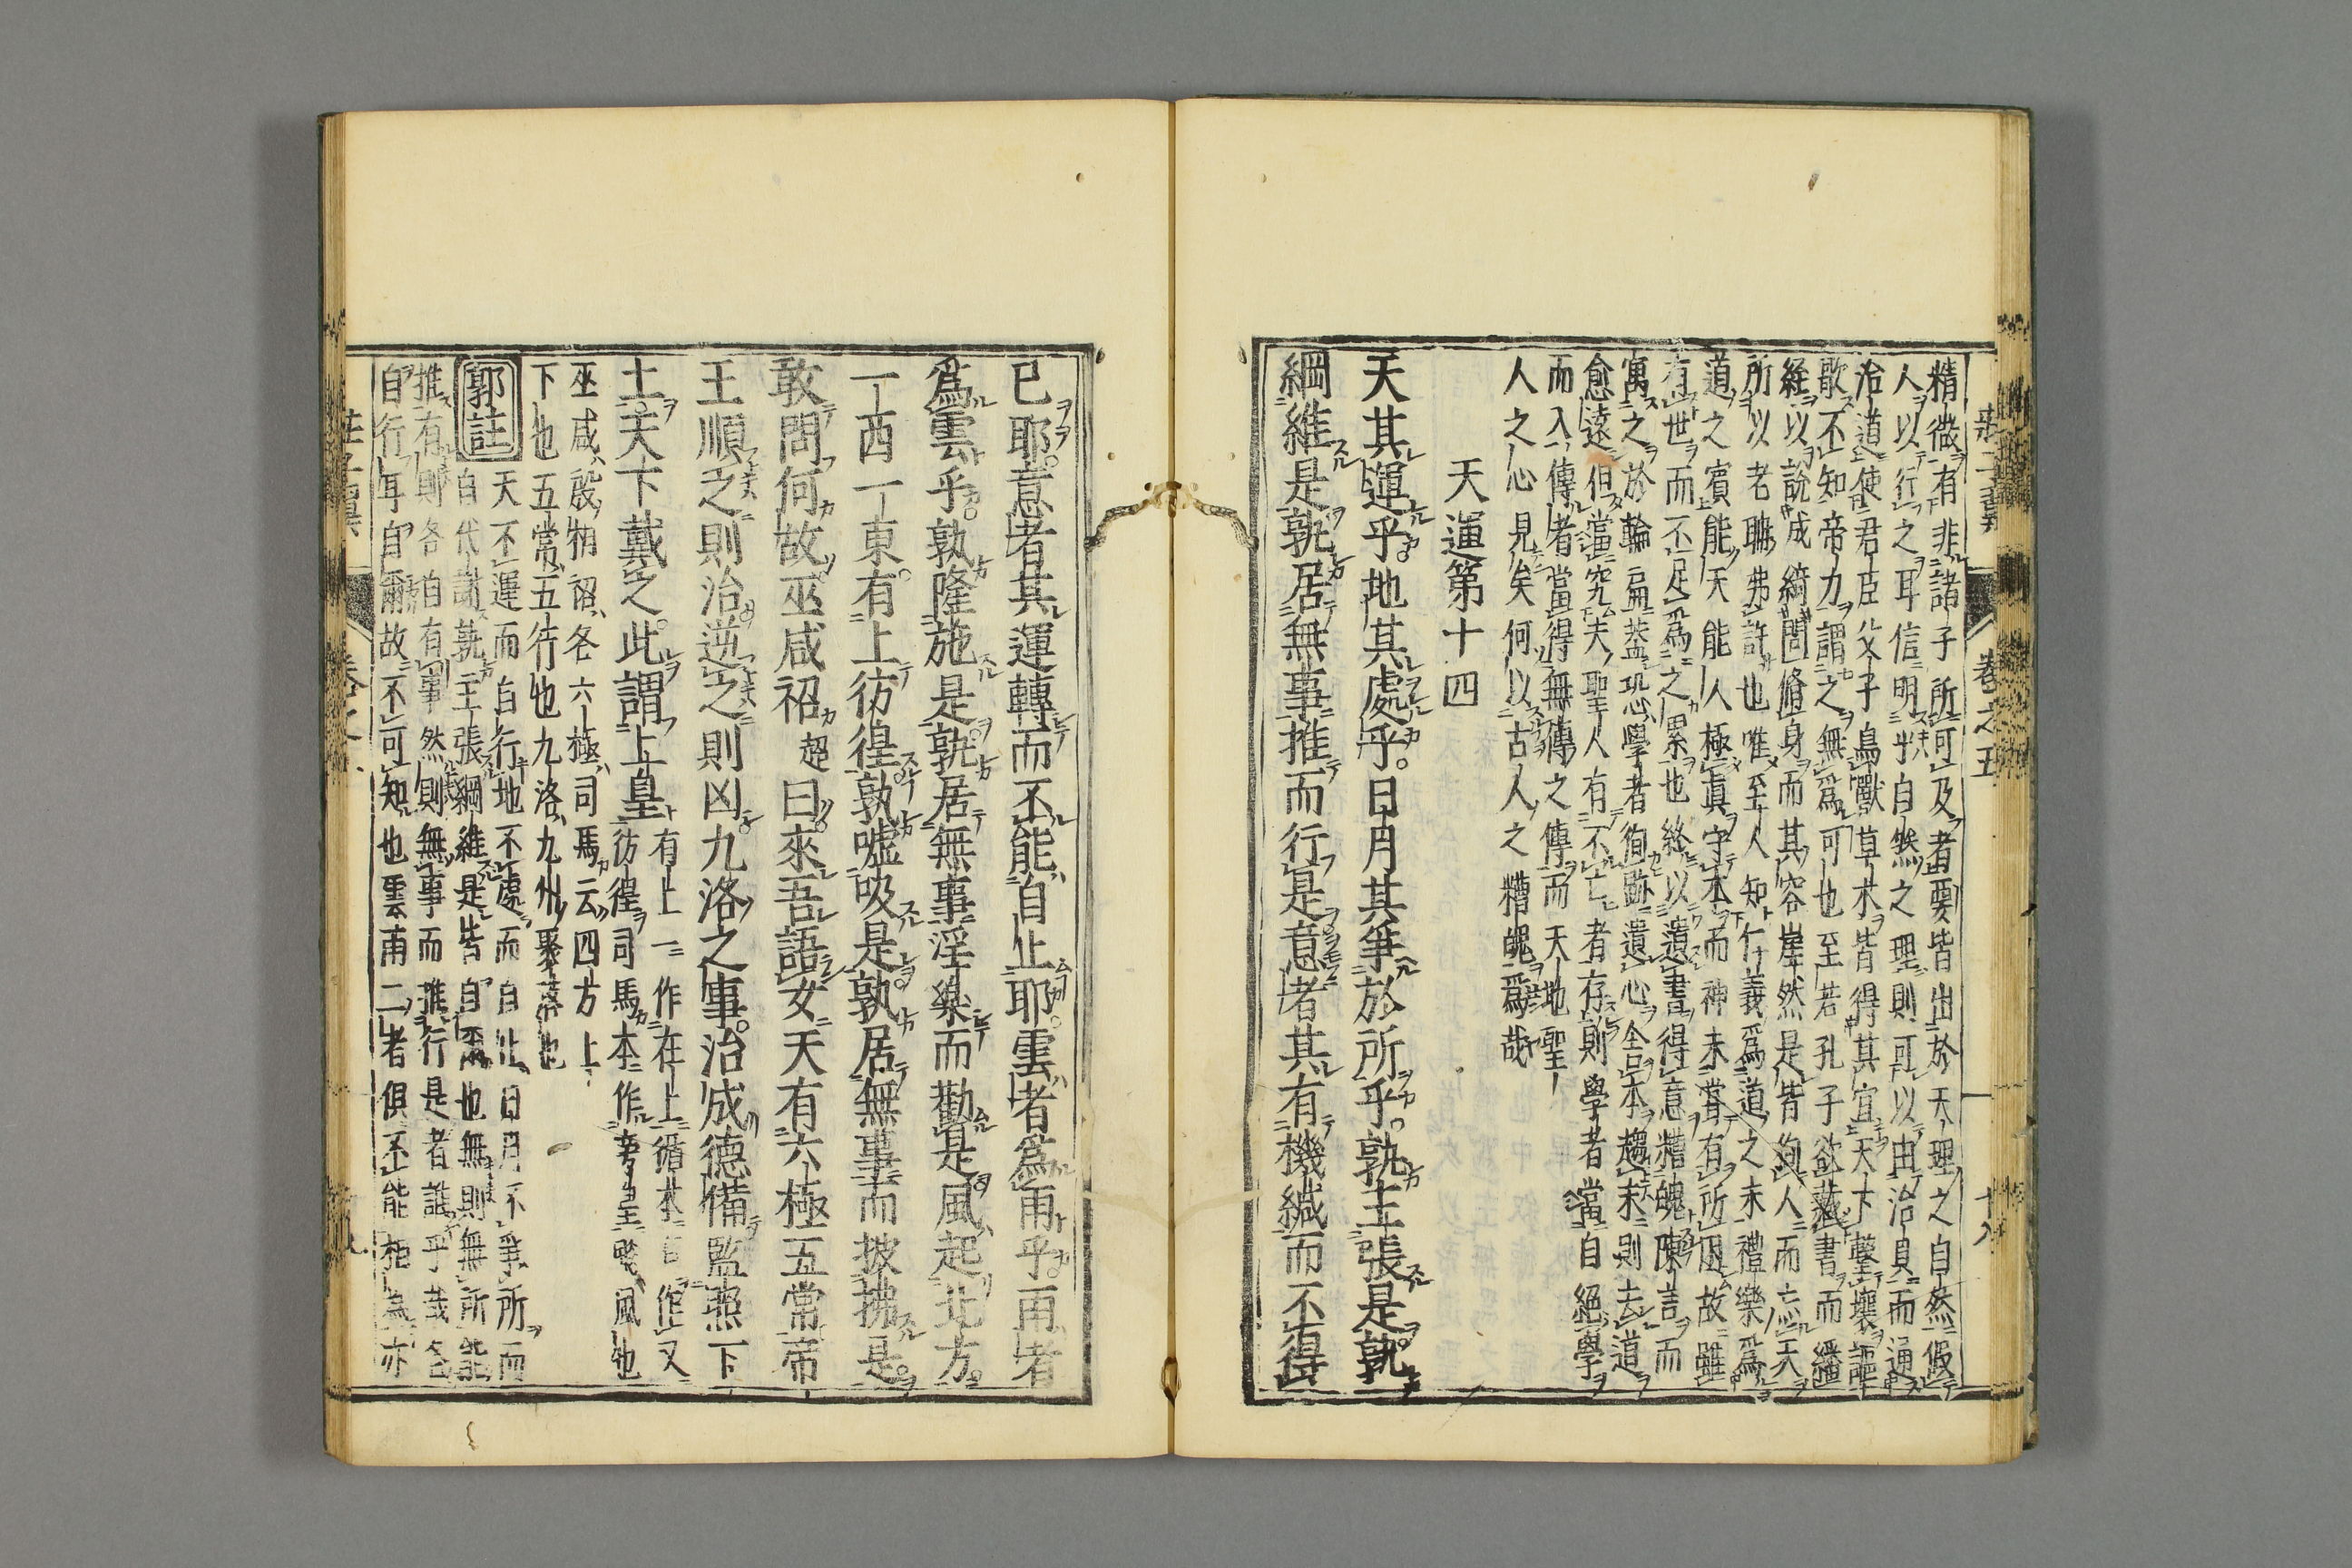 莊子翼 卷之五 十八
精微有非諸子所可及者要皆出於天理之自然假
人以行之耳信明乎自然之理則可以由治具而通
治道使君臣父子鳥獸草木皆得其宜天下擊壤謳
歌不知帝力謂之無爲可也至若孔子欲藏書而繙
經以說成綺問脩身而其容崖然是皆徇人而忘天
所以者聃弗許也唯至人知仁義爲道之末禮樂爲
道之賓能天能人極眞守本而神未嘗有所困故雖
有世而不足爲之累也終以遺書得意糟魄陳言而
寓之於輪扁葢恐學者徇跡遺心舍本趨末則去道
愈遠但當究夫聖人有不亡者存則學者當自絕學
而入傳者當得無傳之傳而天地聖
人之心見矣何以古人之糟魄爲哉
天運第十四
天其運乎地其處乎日月其爭於所乎孰主張是孰
綱維是孰居無事推而行是意者其有機緘而不得
已耶意者其運轉而不能自止耶雲者爲雨乎雨者
爲雲乎孰隆施是孰居無事淫樂而勸是風起北方
一西一東有上彷徨孰噓吸是孰居無事而披拂是
敢問何故巫咸祒超曰來吾語女天有六極五常帝
王順之則治逆之則凶九洛之事治成德備監照下
土天下戴之此謂上皇有上一作在上循本作又
彷徨司馬本作旁皇飈風也
巫咸殷相祒名六極司馬云四方上
下也五常五行也九洛九州聚落也
郭註 天不運而自行地不處而自止日月不爭所而
自代謝孰主張綱維是皆自爾也無則無所能
推有則各自有事然則無事而推行是者誰乎哉各
自行耳自爾故不可知也雲雨二者俱不能相爲亦